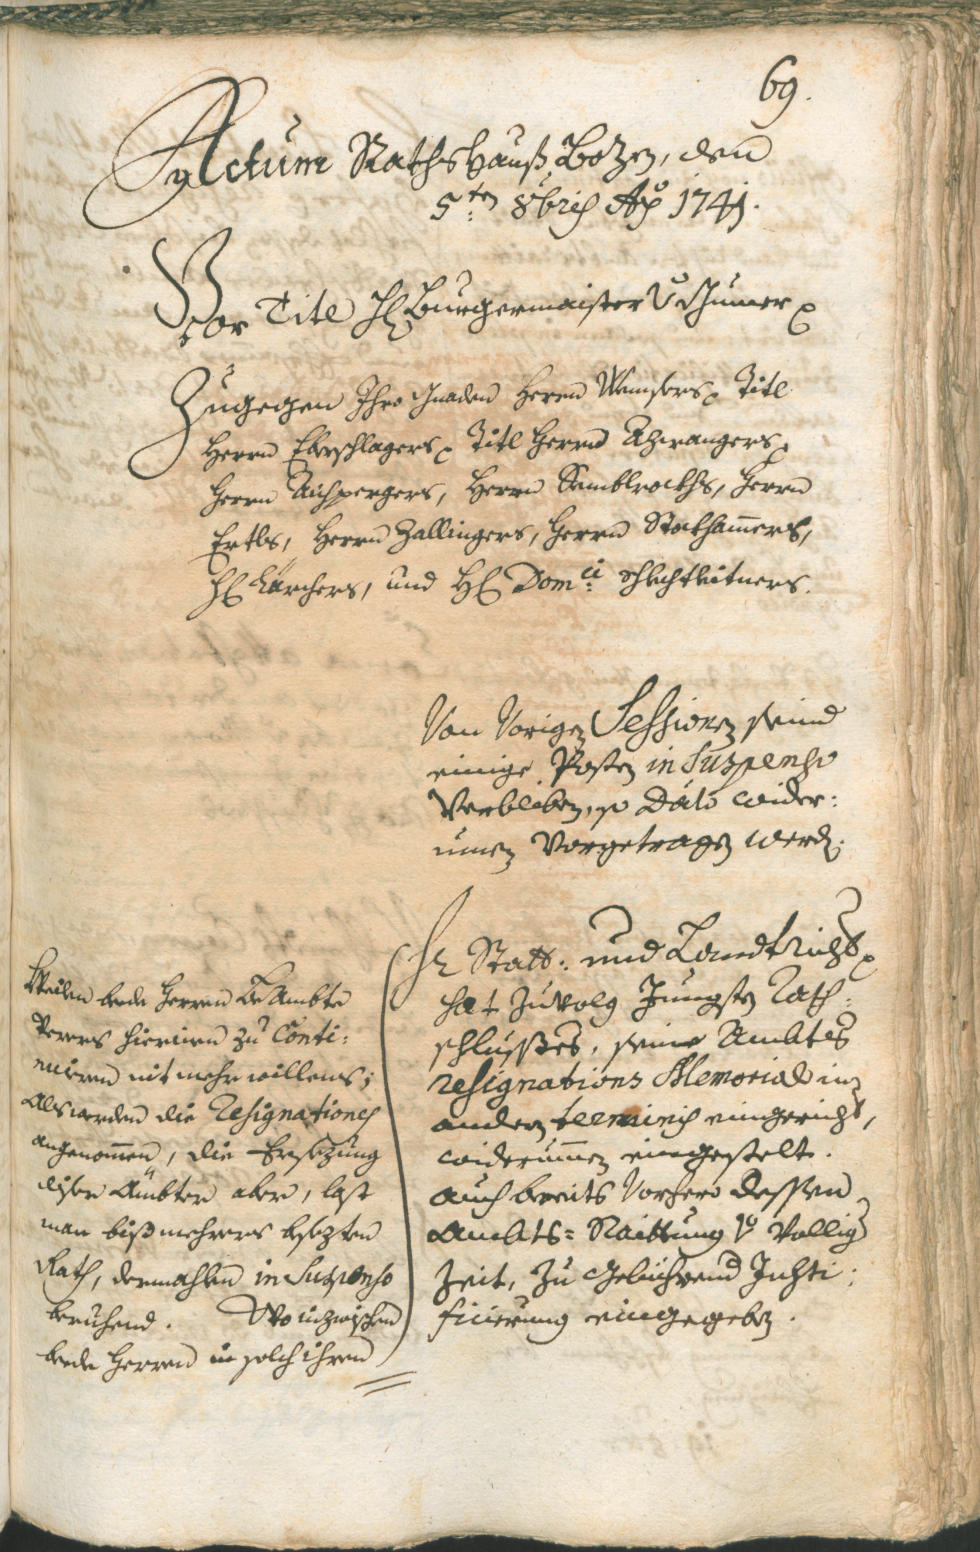 69.
Actum Rathshauß Bozen, den
5ten 8bris Aõ 1741.
Vor Titl H: Burgermaister
Zugegen Ihro Gnaden Herrn Titl
Herrn Eberschlagers, Titl Herrn Azwangers,
Herrn Aichpergers, Herrn Semblrockhs, Herrn
Ertls, Herrn Zallingers, Herrn Stokhamers,
H: Karchers, und H: Domci Schlechtleitners.
Von Vorigen Sessionen seind
einige Posten in Suspenso
Verbliben, so Dato wider:
umen Vorgetragen werd:
Hr Statt: und Landtricht
hat Zuvolg Jüngsten Rath:
schlusses, seine Ambts
resignations Memorial in
andern terminis eingericht,
widerumen eingestelt.
auch bereits Vorhero dessen
Ambts= Raittung pro Vollig
Zeit, zu gebührend Justi:
ficierung eingegeben.
Weilen beede Herren Be Ambte
ferers hierinen zu Conti:
nuiren nit mehr willens;
Als werden die Resignationes
angenommen, die Ersezung
diser Ämbter aber, last
man biß mehrers besezten
Rath, dermahlen in Suspenso
beruhend. Wo inzwischen
beede Herren in solch ihren